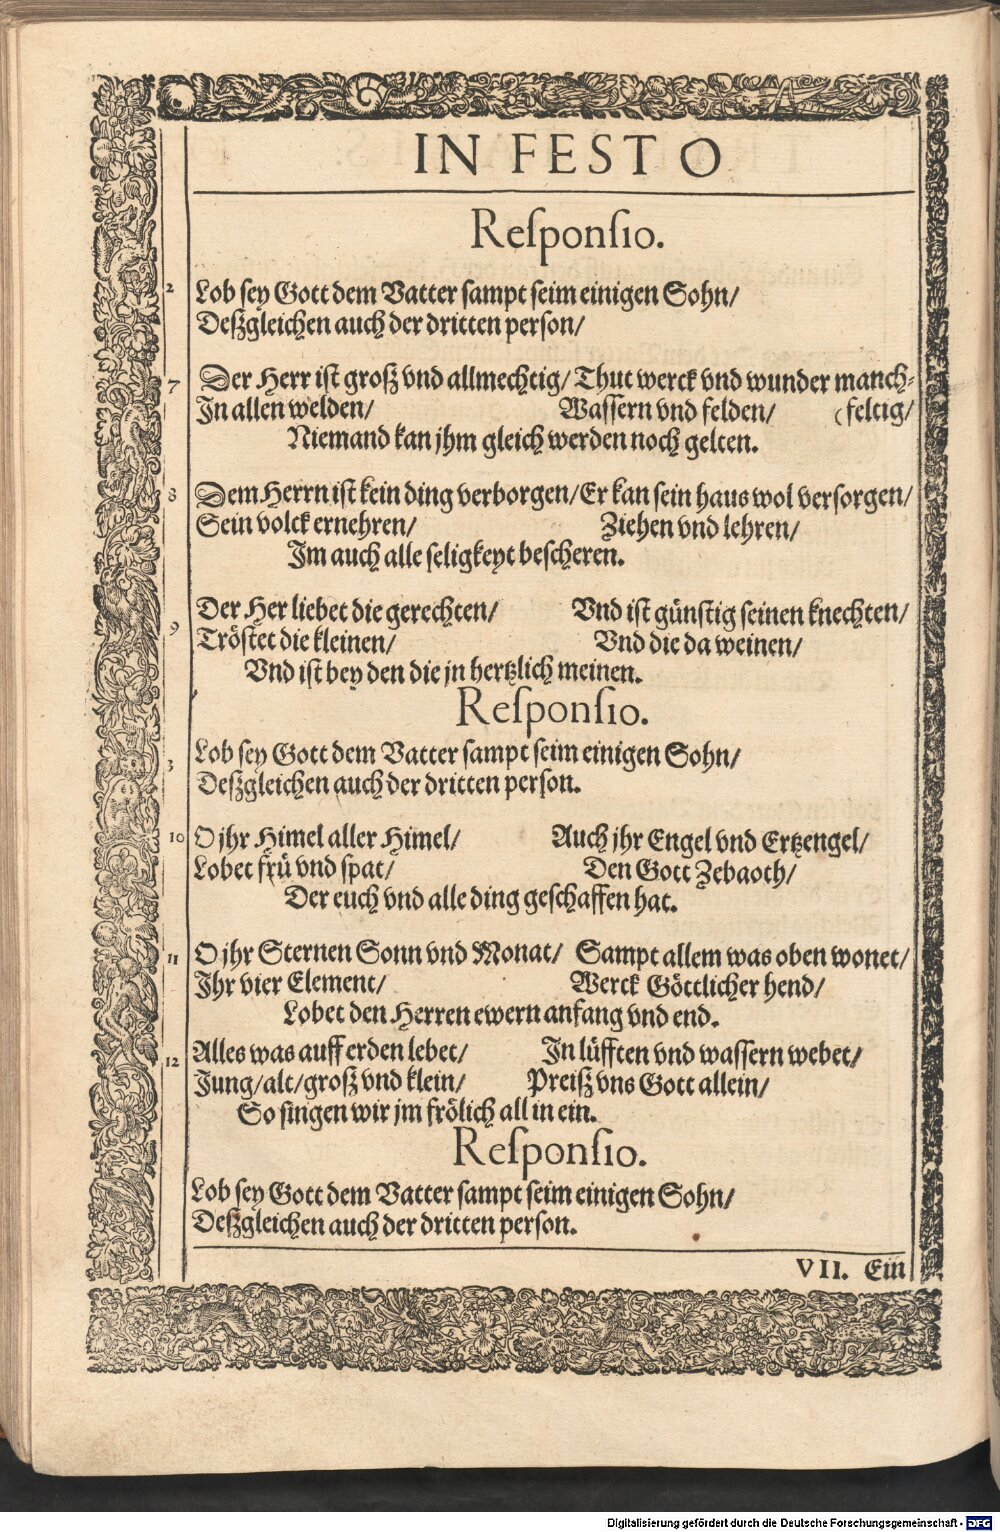 IN FESTO
Responsio.
2 Lob sey Gott dem Vatter sampt seim einigen Sohn/
Deßgleichen auch der dritten person/
7 Der Herr ist groß vnd allmechtig/ Thut werck vnd wunder manch-
In allen welden/ Wassern vnd felden/ (feltig/
Niemand kan jhm gleich werden noch gelten.
8 Dem Herrn ist kein ding verborgen/ Er kan sein haus wol versorgen/
Sein volck ernehren/ Ziehen vnd lehren/
Im auch alle seligkeyt bescheren.
Der Her liebet die gerechten/ Vnd ist günstig seinen knechten/
9 Tröstet die kleinen/ Vnd die da weinen/
Vnd ist bey den die jn hertzlich meinen.
Responsio.
3 Lob sey Gott dem Vatter sampt seim einigen Sohn/
Deßgleichen auch der dritten person.
10 O jhr Himel aller Himel/ Auch jhr Engel vnd Ertzengel/
Lobet frü vnd spat/ Den Gott Zebaoth/
Der euch vnd alle ding geschaffen hat.
11 O jhr Sternen Sonn vnd Monat/ Sampt allem was oben wonet/
Ihr vier Element/ Werck Göttlicher hend/
Lobet den Herren ewern anfang vnd end.
12 Alles was auff erden lebet/ In lüfften vnd wassern webet/
Jung/ alt/ groß vnd klein/ Preiß vns Gott allein/
So singen wir jm frölich all in ein.
Responsio.
Lob sey Gott dem Vatter sampt seim einigen Sohn/
Deßgleichen auch der dritten person.
VII. Ein
Digitalisierung gefördert durch die Deutsche Forschungsgemeinschaft - DFG